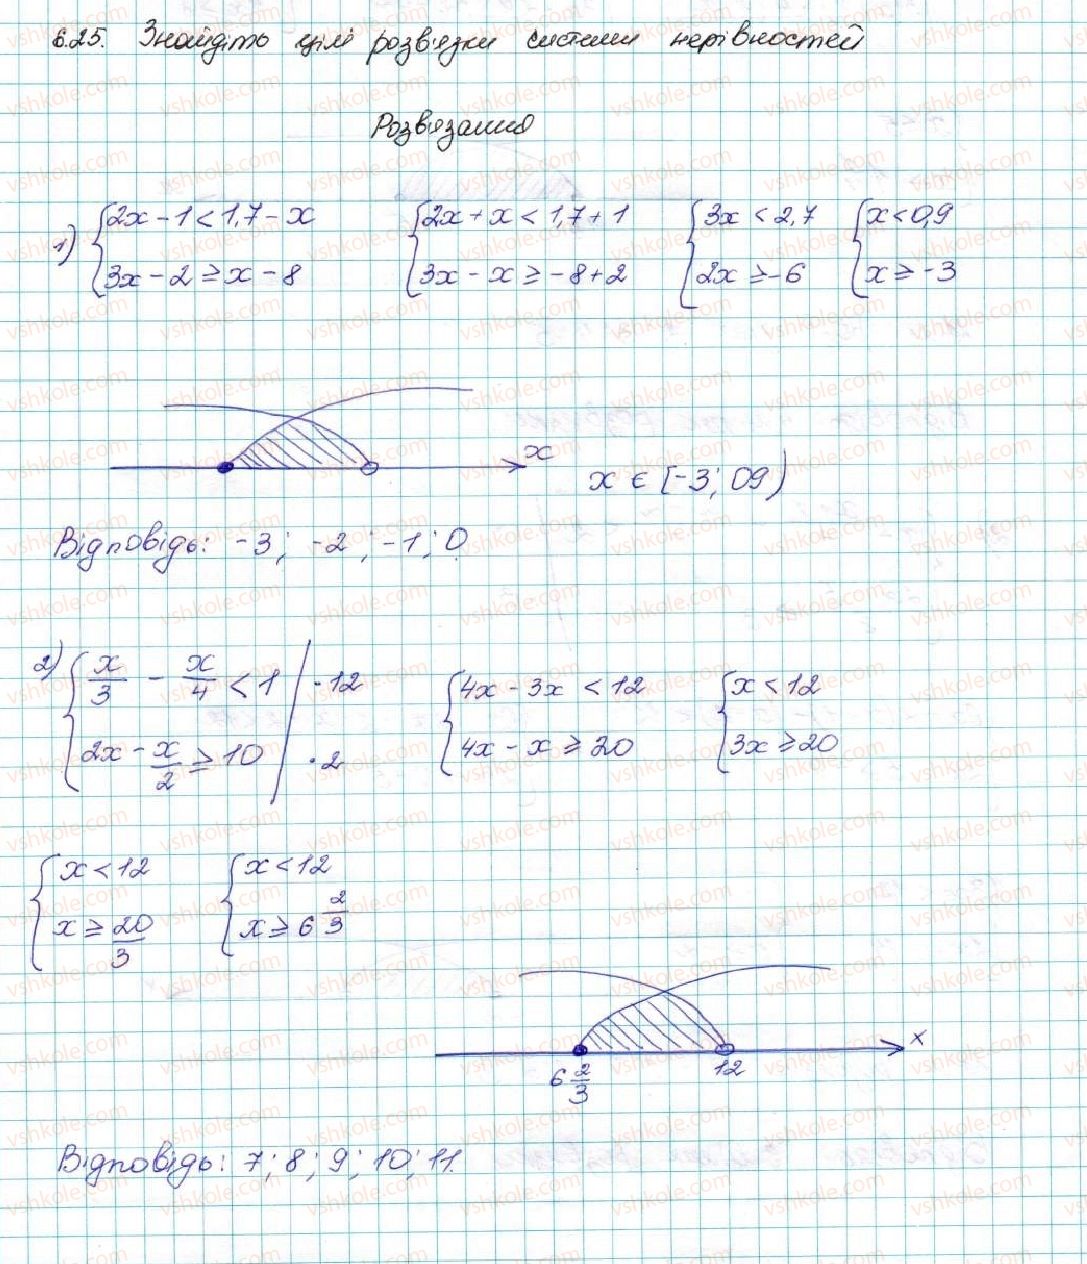 6.25. Знайдіть цілі розв'язки системи нерівностей
Розв'язання
1) {2x - 1 < 1,7 - x {2x + x < 1,7 + 1 {3x < 2,7 {x < 0,9
3x - 2 ≥ x - 8 3x - x ≥ -8 + 2 2x ≥ -6 x ≥ -3
x
x ∈ [-3; 09)
Відповідь: -3; -2; -1; 0
2) {x/3 - x/4 < 1 | ·12 {4x - 3x < 12 {x < 12
2x - x/2 ≥ 10 | ·2 4x - x ≥ 20 3x ≥ 20
{x < 12 {x < 12
x ≥ 20/3 x ≥ 6 2/3
x
6 2/3 12
Відповідь: 7; 8; 9; 10; 11.
vshkole.com